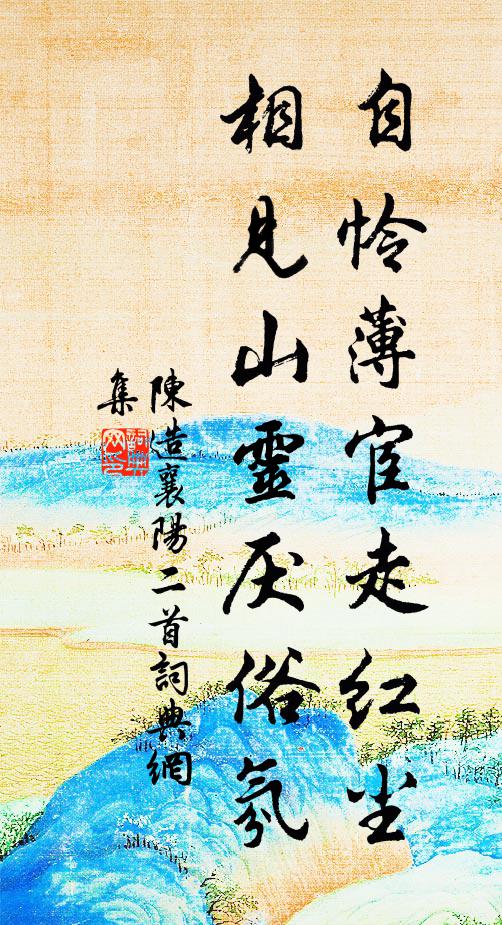 自怜薄宦走红尘
相见山靈厌俗氛
陳造襄陽二首詞典網
集